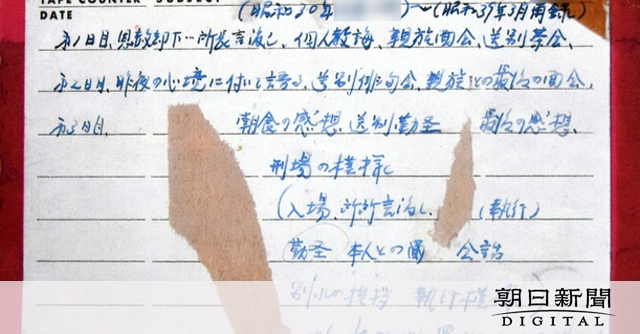 TAPE COUNTER SUBJECT
DATE
(昭和30年 )~(昭和37年3月再録)
第1日目、恩赦却下…所長言渡し、個人教誨、親族面会、送別茶会、
第2日目、昨夜の心境に付いて語る、送別俳句会、親族との最後の面会、
第3日目、 朝食の感想、送別勤圣 最後の感想、
刑場の模様
(入場、所長言渡し、 (執行)
勤圣 本人との 会話
別れの挨拶 執行
朝日新聞
DIGITAL